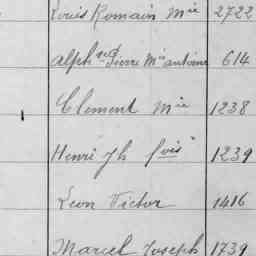 Louis Romain Mie 2722
Alphse Pierre Mie antoine 614
Clement Mie 1238
Henri Jh fois 1239
Leon Victor 1416
Marcel Joseph 1739